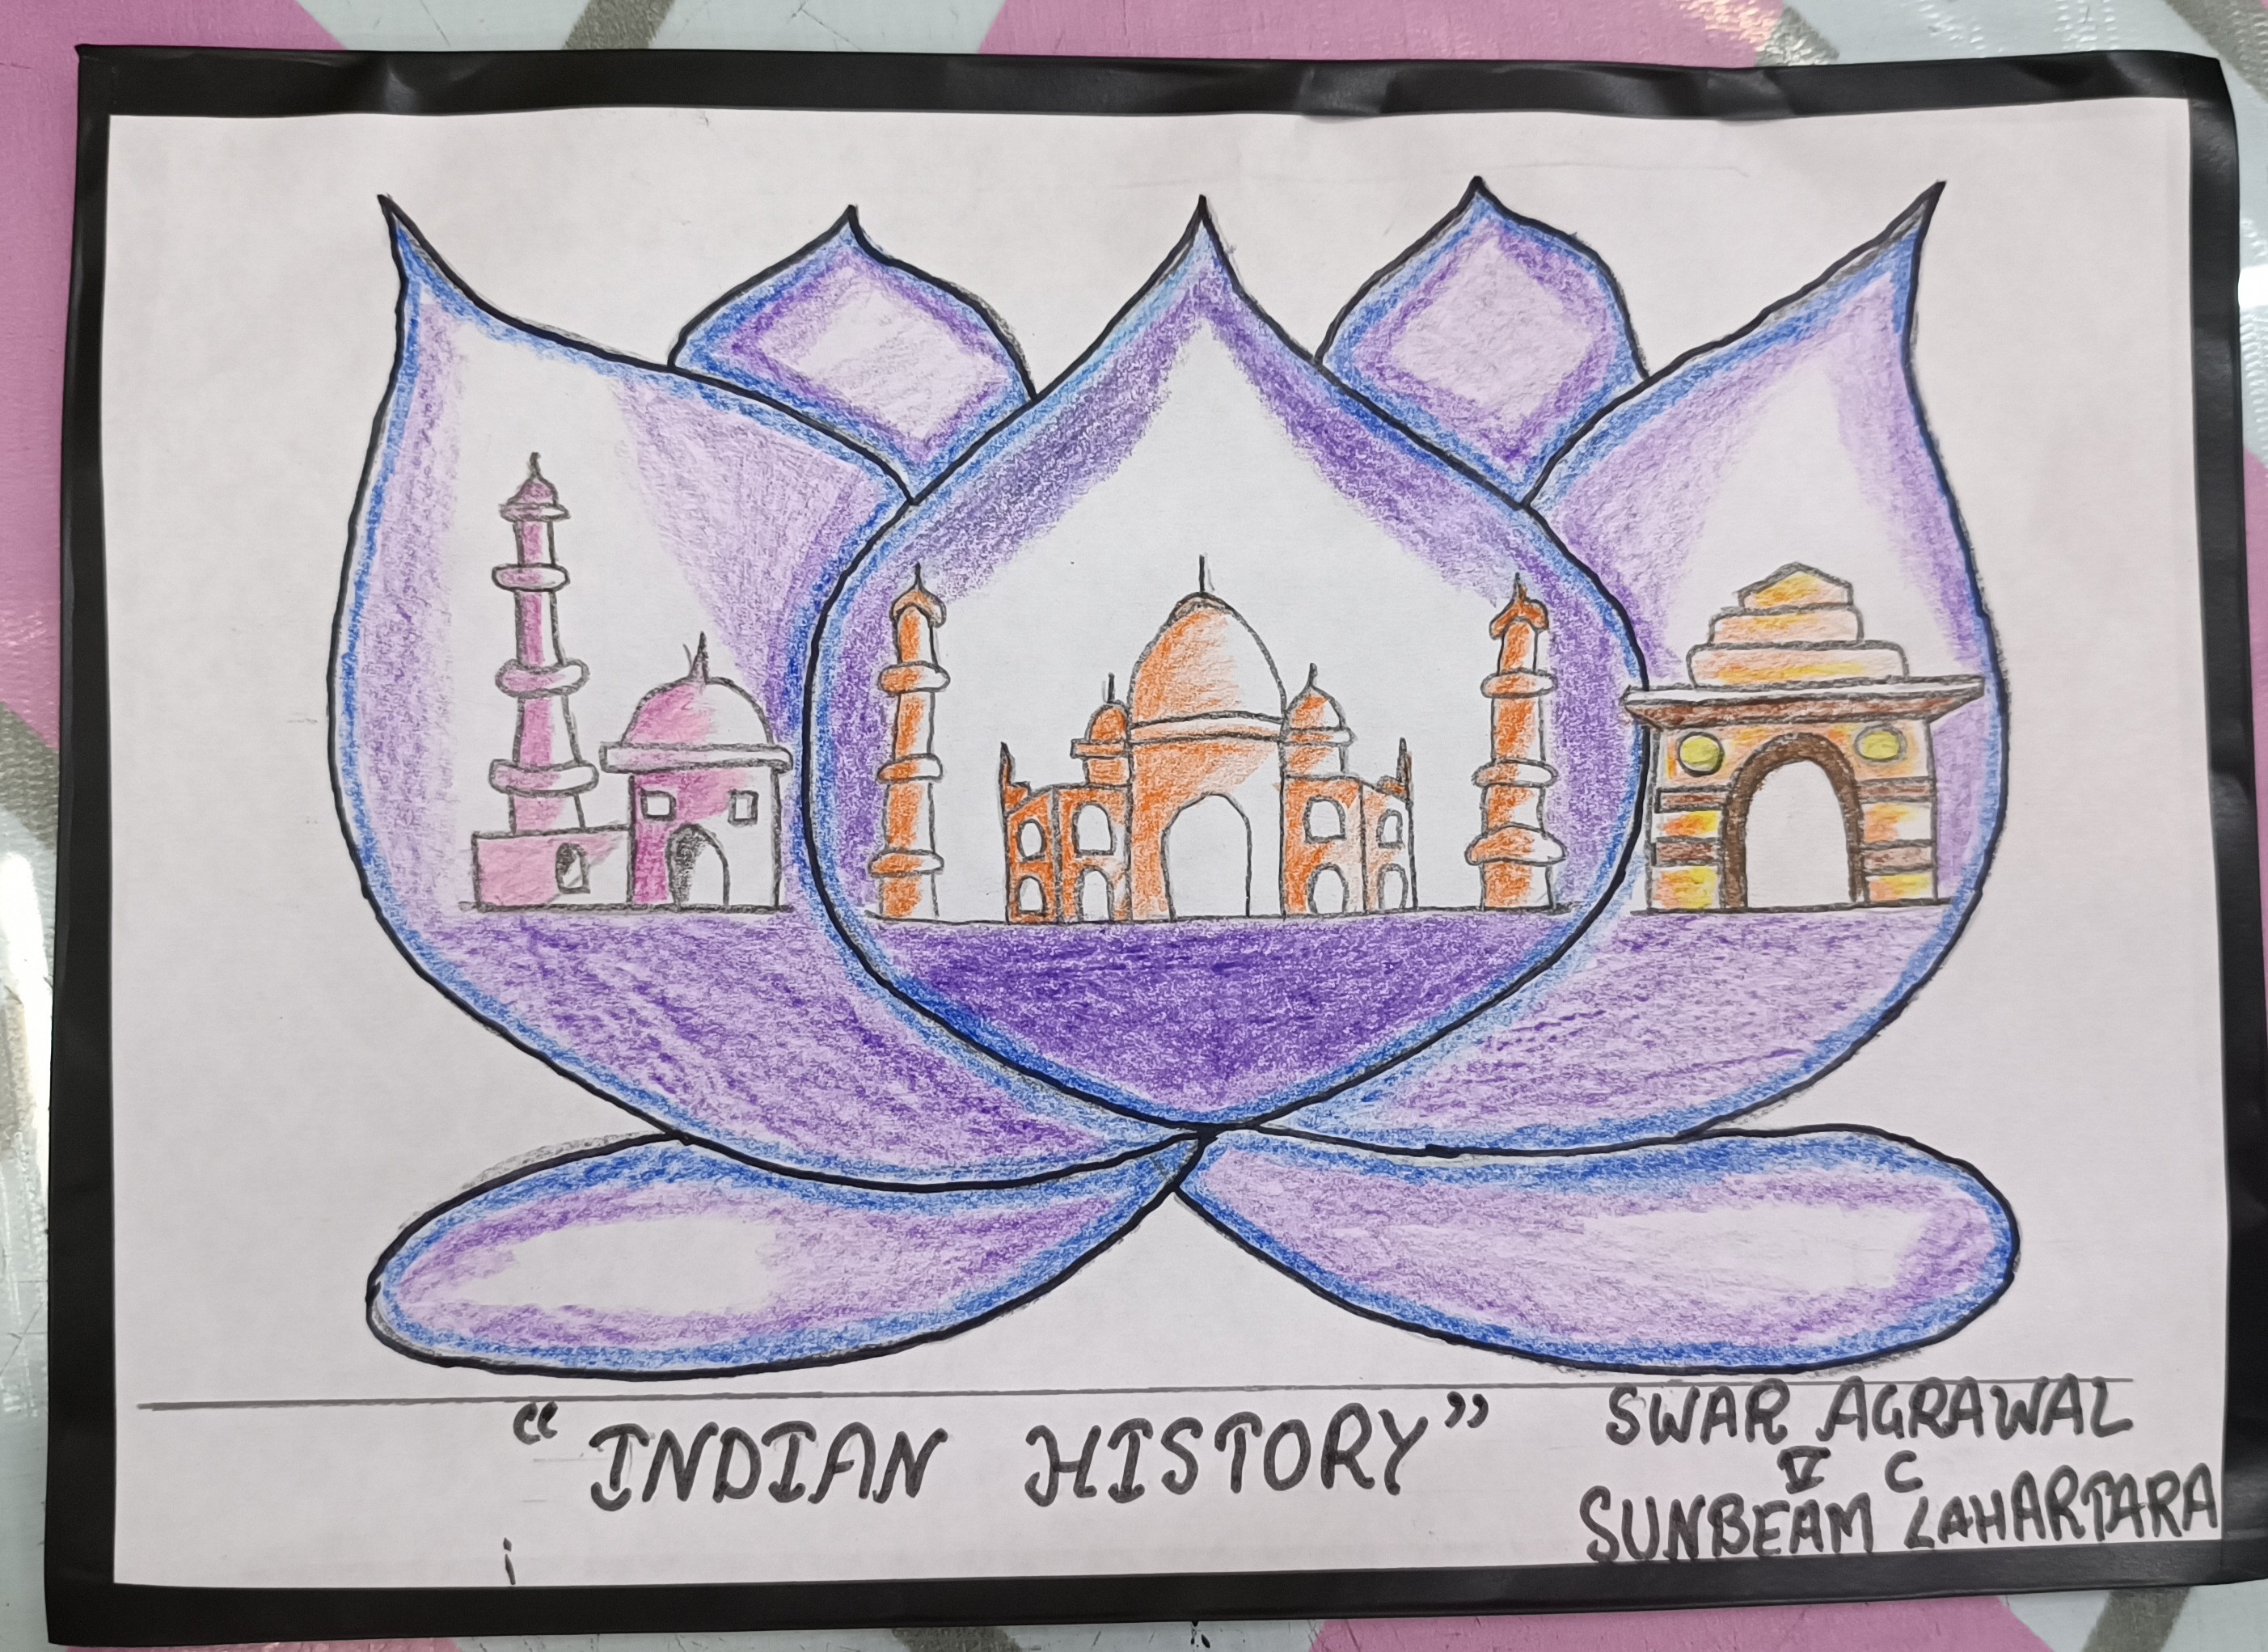 “INDIAN HISTORY”
SWAR AGRAWAL
V C
SUNBEAM LAHARTARA